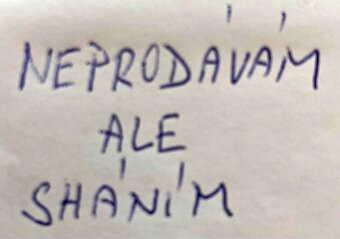 NEPRODÁVÁM
ALE
SHÁNÍM